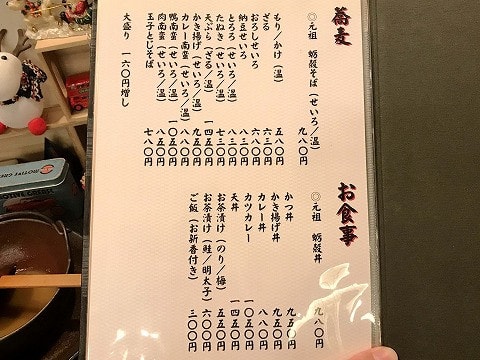 蕎麦
◎元祖 蛎殻そば(せいろ/温) 九八〇円
もり/かけ(温) 五五〇円
ざる 六三〇円
おろしせいろ 六八〇円
納豆せいろ 八三〇円
とろろ(せいろ/温) 八三〇円
たぬき(せいろ/温) 七三〇円
天ぷら(ざる/温) 一四五〇円
かき揚げ(せいろ/温) 九五〇円
カレー南蛮(せいろ/温) 八八〇円
鴨南蛮(せいろ/温) 一〇五〇円
肉南蛮(せいろ/温) 八五〇円
玉子とじそば 七八〇円
大盛り 一六〇円増し
お食事
◎元祖 蛎殻丼 九八〇円
かつ丼 九五〇円
かき揚げ丼 九五〇円
カレー丼 八八〇円
カツカレー 一〇五〇円
天丼 一四五〇円
お茶漬け(のり/梅) 五五〇円
お茶漬け(鮭/明太子) 六〇〇円
ご飯(お新香付き) 三〇〇円